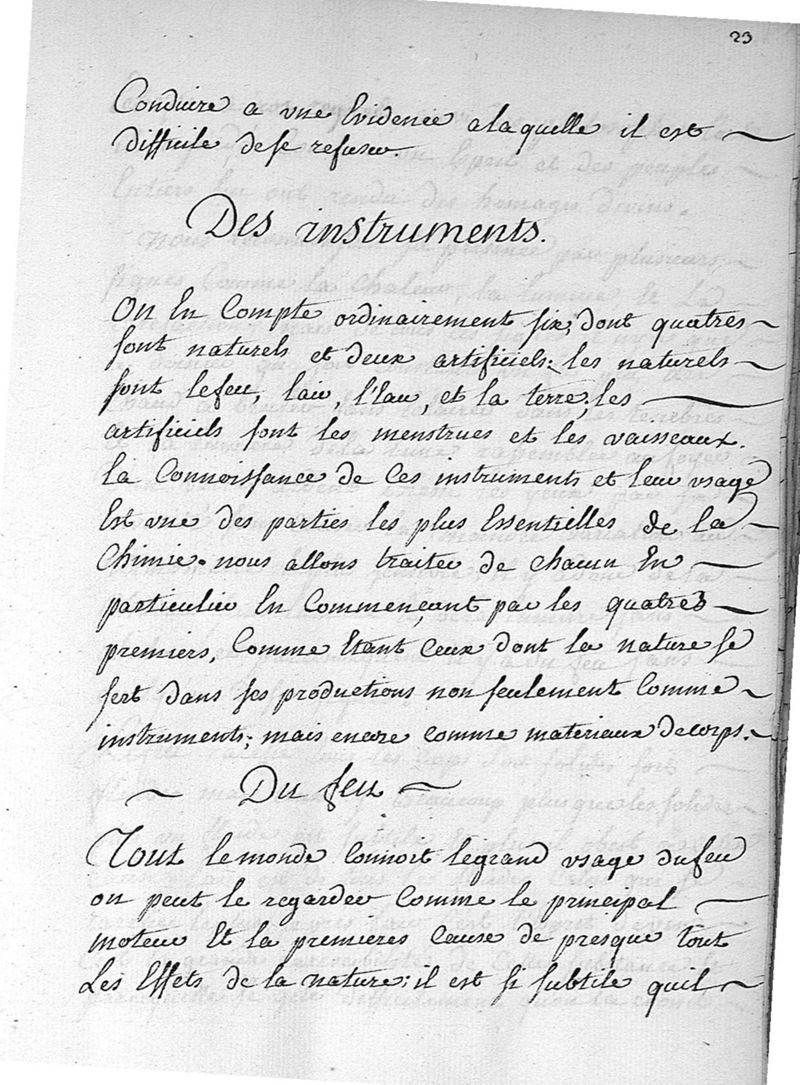 23
Conduire a vne Evidence alaquelle il est
difficile de se refuser.
Des instruments.
On En Compte ordinairement six, dont quatres
sont naturels et deux artificiels; les naturels
sont lefeu, lair, l'Eau, et la terre, les
artificiels sont les menstrues et les vaisseaux.
la Connoissance de Ces instruments et leur vsage
Est vne des parties les plus Essentielles de la
Chimie. nous allons traiter de chacun En
particulier En Commençant par les quatres
premiers, Comme Etant Ceux dont la nature se
sert dans ses productions non seulement Comme
instruments; mais encore comme materiaux decorps.
Du feu
Tout lemonde Connoit legrand vsage dufeu
on peut le regarder Comme le principal
moteur Et la premieres Cause de presque tout
Les Effets de la nature; il est si subtile quil